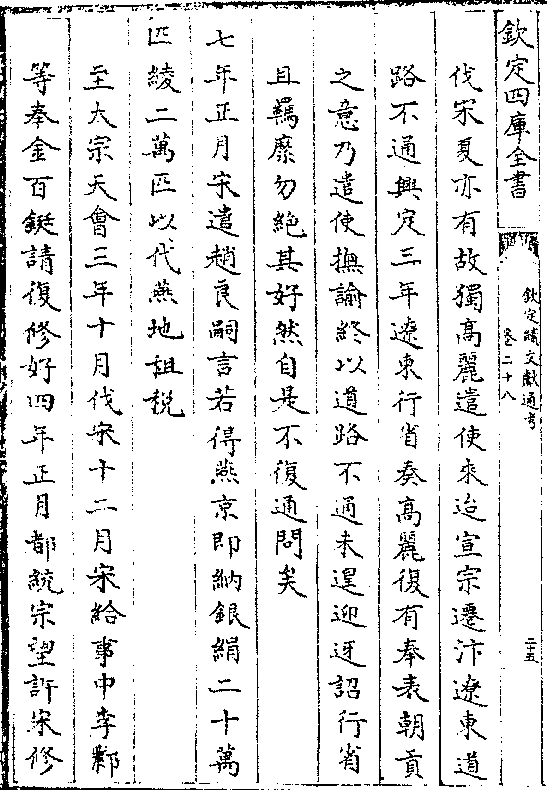 欽定四庫全書
欽定續文獻通考
卷二十八
二十五
伐宋夏亦有故獨髙麗遣使來迨宣宗遷汴遼東道
路不通興定三年遼東行省奏髙麗復有奉表朝貢
之意乃遣使撫諭終以道路不通未遑迎迓詔行省
且羈縻勿絶其好然自是不復通問矣
七年正月宋遣趙良嗣言若得燕京即納銀絹二十萬
匹綾二萬匹以代燕地詛稅
至太宗天會三年十月伐宋十二月宋給事中李鄴
等奉金百鋌請復修好四年正月都統宗望許宋修